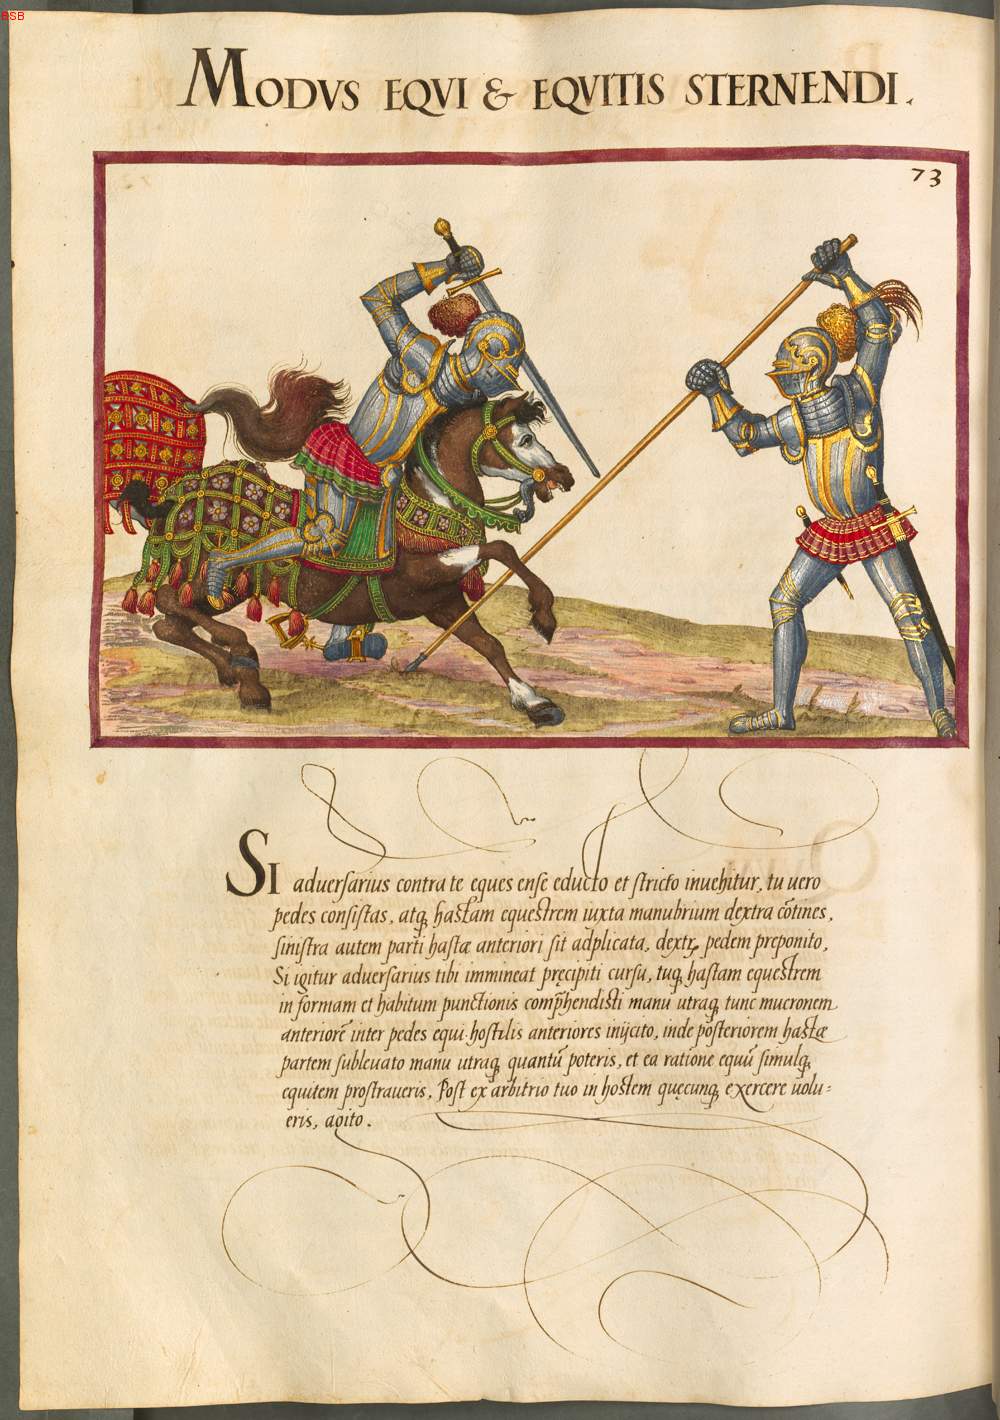 BSB
MODVS EQVI & EQVITIS STERNENDI.
73
SI aduersarius contra te eques ense educto et stricto inuehitur, tu uero
pedes consistas, atq, hastam equestrem iuxta manubrium dextra cōtines,
sinistra autem parti hastæ anteriori sit adplicata, dextrū pedem preponito,
Si igitur aduersarius tibi immineat pręcipiti cursu, tuq, hastam equestrem
in formam et habitum punctionis comp̄hendisti manu utraq, tunc mucronem
anteriorē inter pedes equi hostilis anteriores inijcito, inde posteriorem hastæ
partem subleuato manu utraq, quantū poteris, et ea ratione equū simulq,
equitem prostraueris, Post ex arbitrio tuo in hostem quęcunq, exercere uolu=
eris, agito.